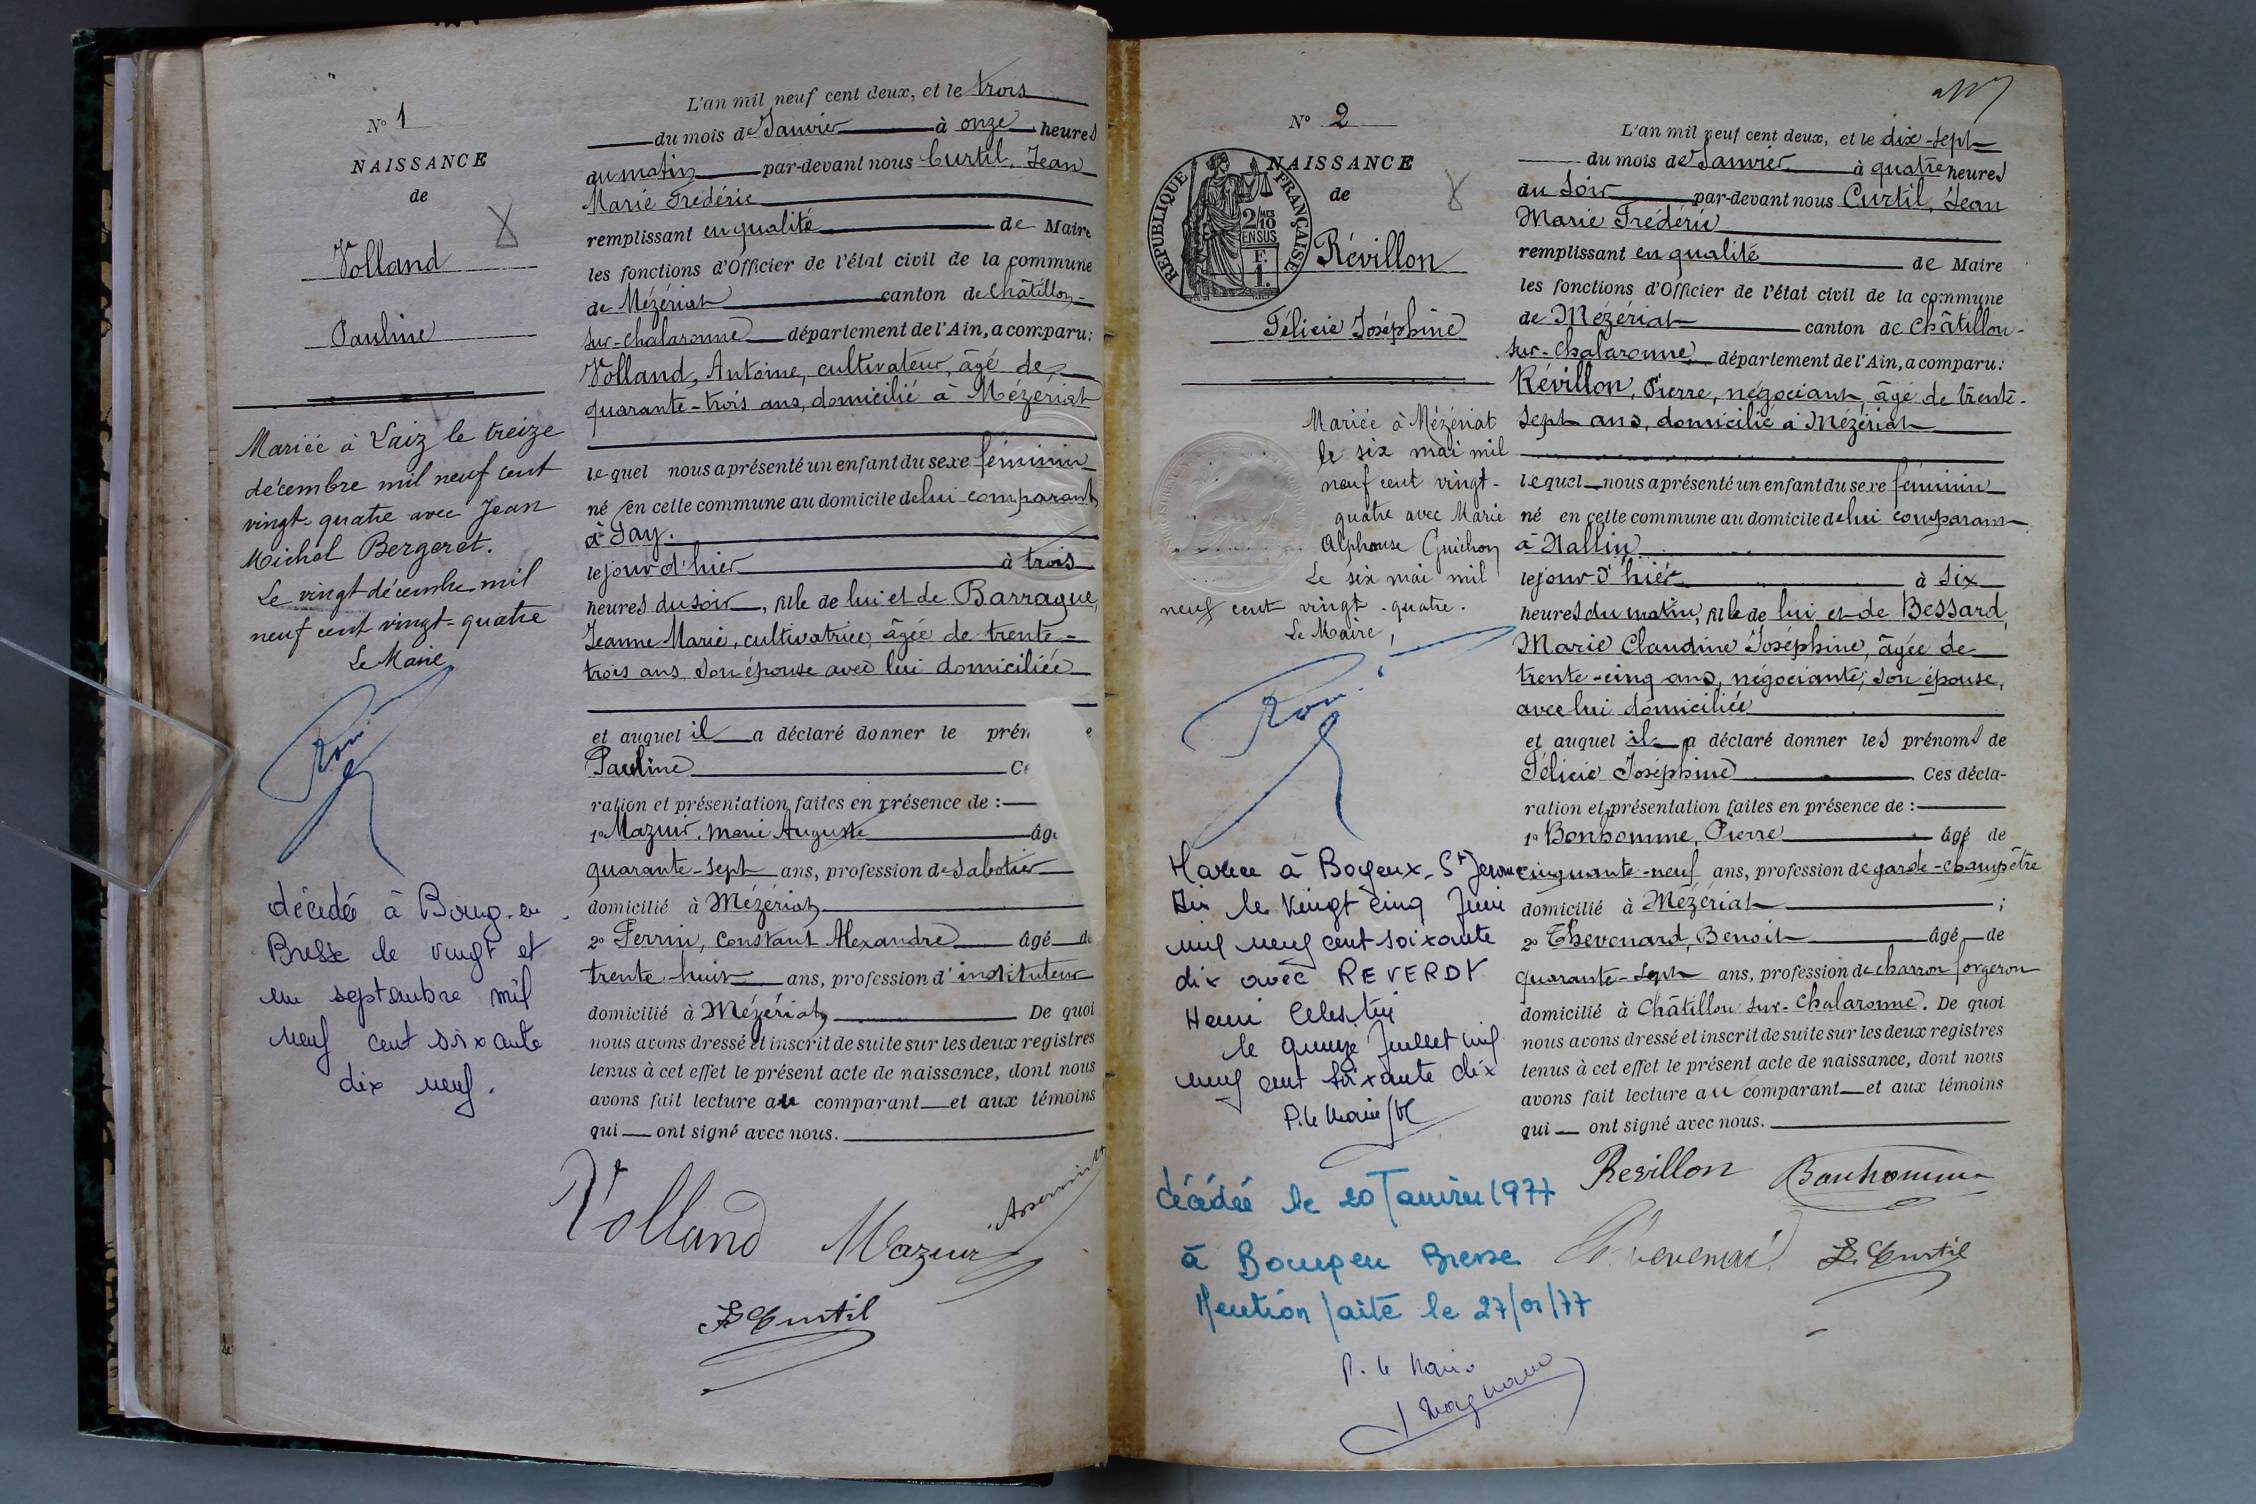 N° 1
NAISSANCE
de
Volland
Pauline
Mariée à Laiz le treize
décembre mil neuf cent
vingt-quatre avec Jean
Michel Bergeret.
Le vingt décembre mil
neuf cent vingt-quatre
Le Maire
décédée à Bourg-en-
Bresse le vingt et
un septembre mil
neuf cent soixante
dix neuf.
L'an mil neuf cent deux, et le trois
du mois de Janvier à onze heures
du matin par-devant nous Curtil, Jean
Marie Frédéric
remplissant en qualité de Maire
les fonctions d'Officier de l'état civil de la commune
de Mézériat canton de Châtillon-
sur-Chalaronne département de l'Ain, a comparu:
Volland, Antoine, cultivateur, âgé de
quarante-trois ans, domicilié à Mézériat
lequel nous a présenté un enfant du sexe féminin
né en cette commune au domicile de lui comparant
à Jay.
le jour d'hier à trois
heures du soir, fille de lui et de Barrague,
Jeanne Marie, cultivatrice, âgée de trente-
trois ans son épouse avec lui domiciliée
et auquel il a déclaré donner le prén e
Pauline C
ration et présentation faites en présence de :
1° Mazuir, Marie Auguste âg
quarante-sept ans, profession de sabotier
domicilié à Mézériat
2° Perrin, Constant Alexandre âgé de
trente-huit ans, profession d'instituteur
domicilié à Mézériat De quoi
nous avons dressé et inscrit de suite sur les deux registres
tenus à cet effet le présent acte de naissance, dont nous
avons fait lecture au comparant et aux témoins
qui ont signé avec nous.
Volland Mazuir
Curtil
N° 2
NAISSANCE
de
REPUBLIQUE FRANÇAISE
2/10
EN SUS
F.
1.
Révillon
Félicie Joséphine
Mariée à Mézériat
le six mai mil
neuf cent vingt-
quatre avec Marie
Alphonse Guichon
Le six mai mil
neuf cent vingt-quatre.
Le Maire,
Mariée à Boyeux-St Jerome
Ain le Vingt cinq Juin
mil neuf cent soixante
dix avec REVERDY
Henri Célestin
le quinze Juillet mil
neuf cent soixante dix
P. le Maire
décédée le 20 Janvier 1977
à Bourg en Bresse
Mention faite le 27/01/77
P. le Maire
L'an mil neuf cent deux, et le dix-sept
du mois de Janvier à quatre heures
du soir par-devant nous Curtil, Jean
Marie Frédéric
remplissant en qualité de Maire
les fonctions d'Officier de l'état civil de la commune
de Mézériat canton de Châtillon-
sur-Chalaronne département de l'Ain, a comparu:
Révillon, Pierre, négociant, âgé de trente-
sept ans, domicilié à Mézériat
lequel nous a présenté un enfant du sexe féminin
né en cette commune au domicile de lui comparant
à Nallin
le jour d'hier à six
heures du matin, fille de lui et de Bessard,
Marie Claudine Joséphine, âgée de
trente-cinq ans, négociante, son épouse,
avec lui domiciliée
et auquel il a déclaré donner les prénoms de
Félicie Joséphine Ces décla-
ration et présentation faites en présence de :
1° Bonhomme, Pierre âgé de
cinquante-neuf ans, profession de garde-champêtre
domicilié à Mézériat ;
2° Thevenard, Benoit âgé de
quarante-sept ans, profession de charron forgeron
domicilié à Châtillon sur-Chalaronne. De quoi
nous avons dressé et inscrit de suite sur les deux registres
tenus à cet effet le présent acte de naissance, dont nous
avons fait lecture au comparant et aux témoins
qui ont signé avec nous.
Revillon Bonhomme
Curtil